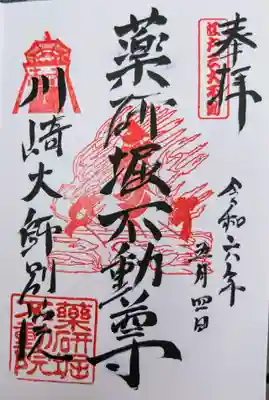 奉拝
令和六年
五月四日
薬研堀不動尊
川崎大師別院
薬研堀
不動院